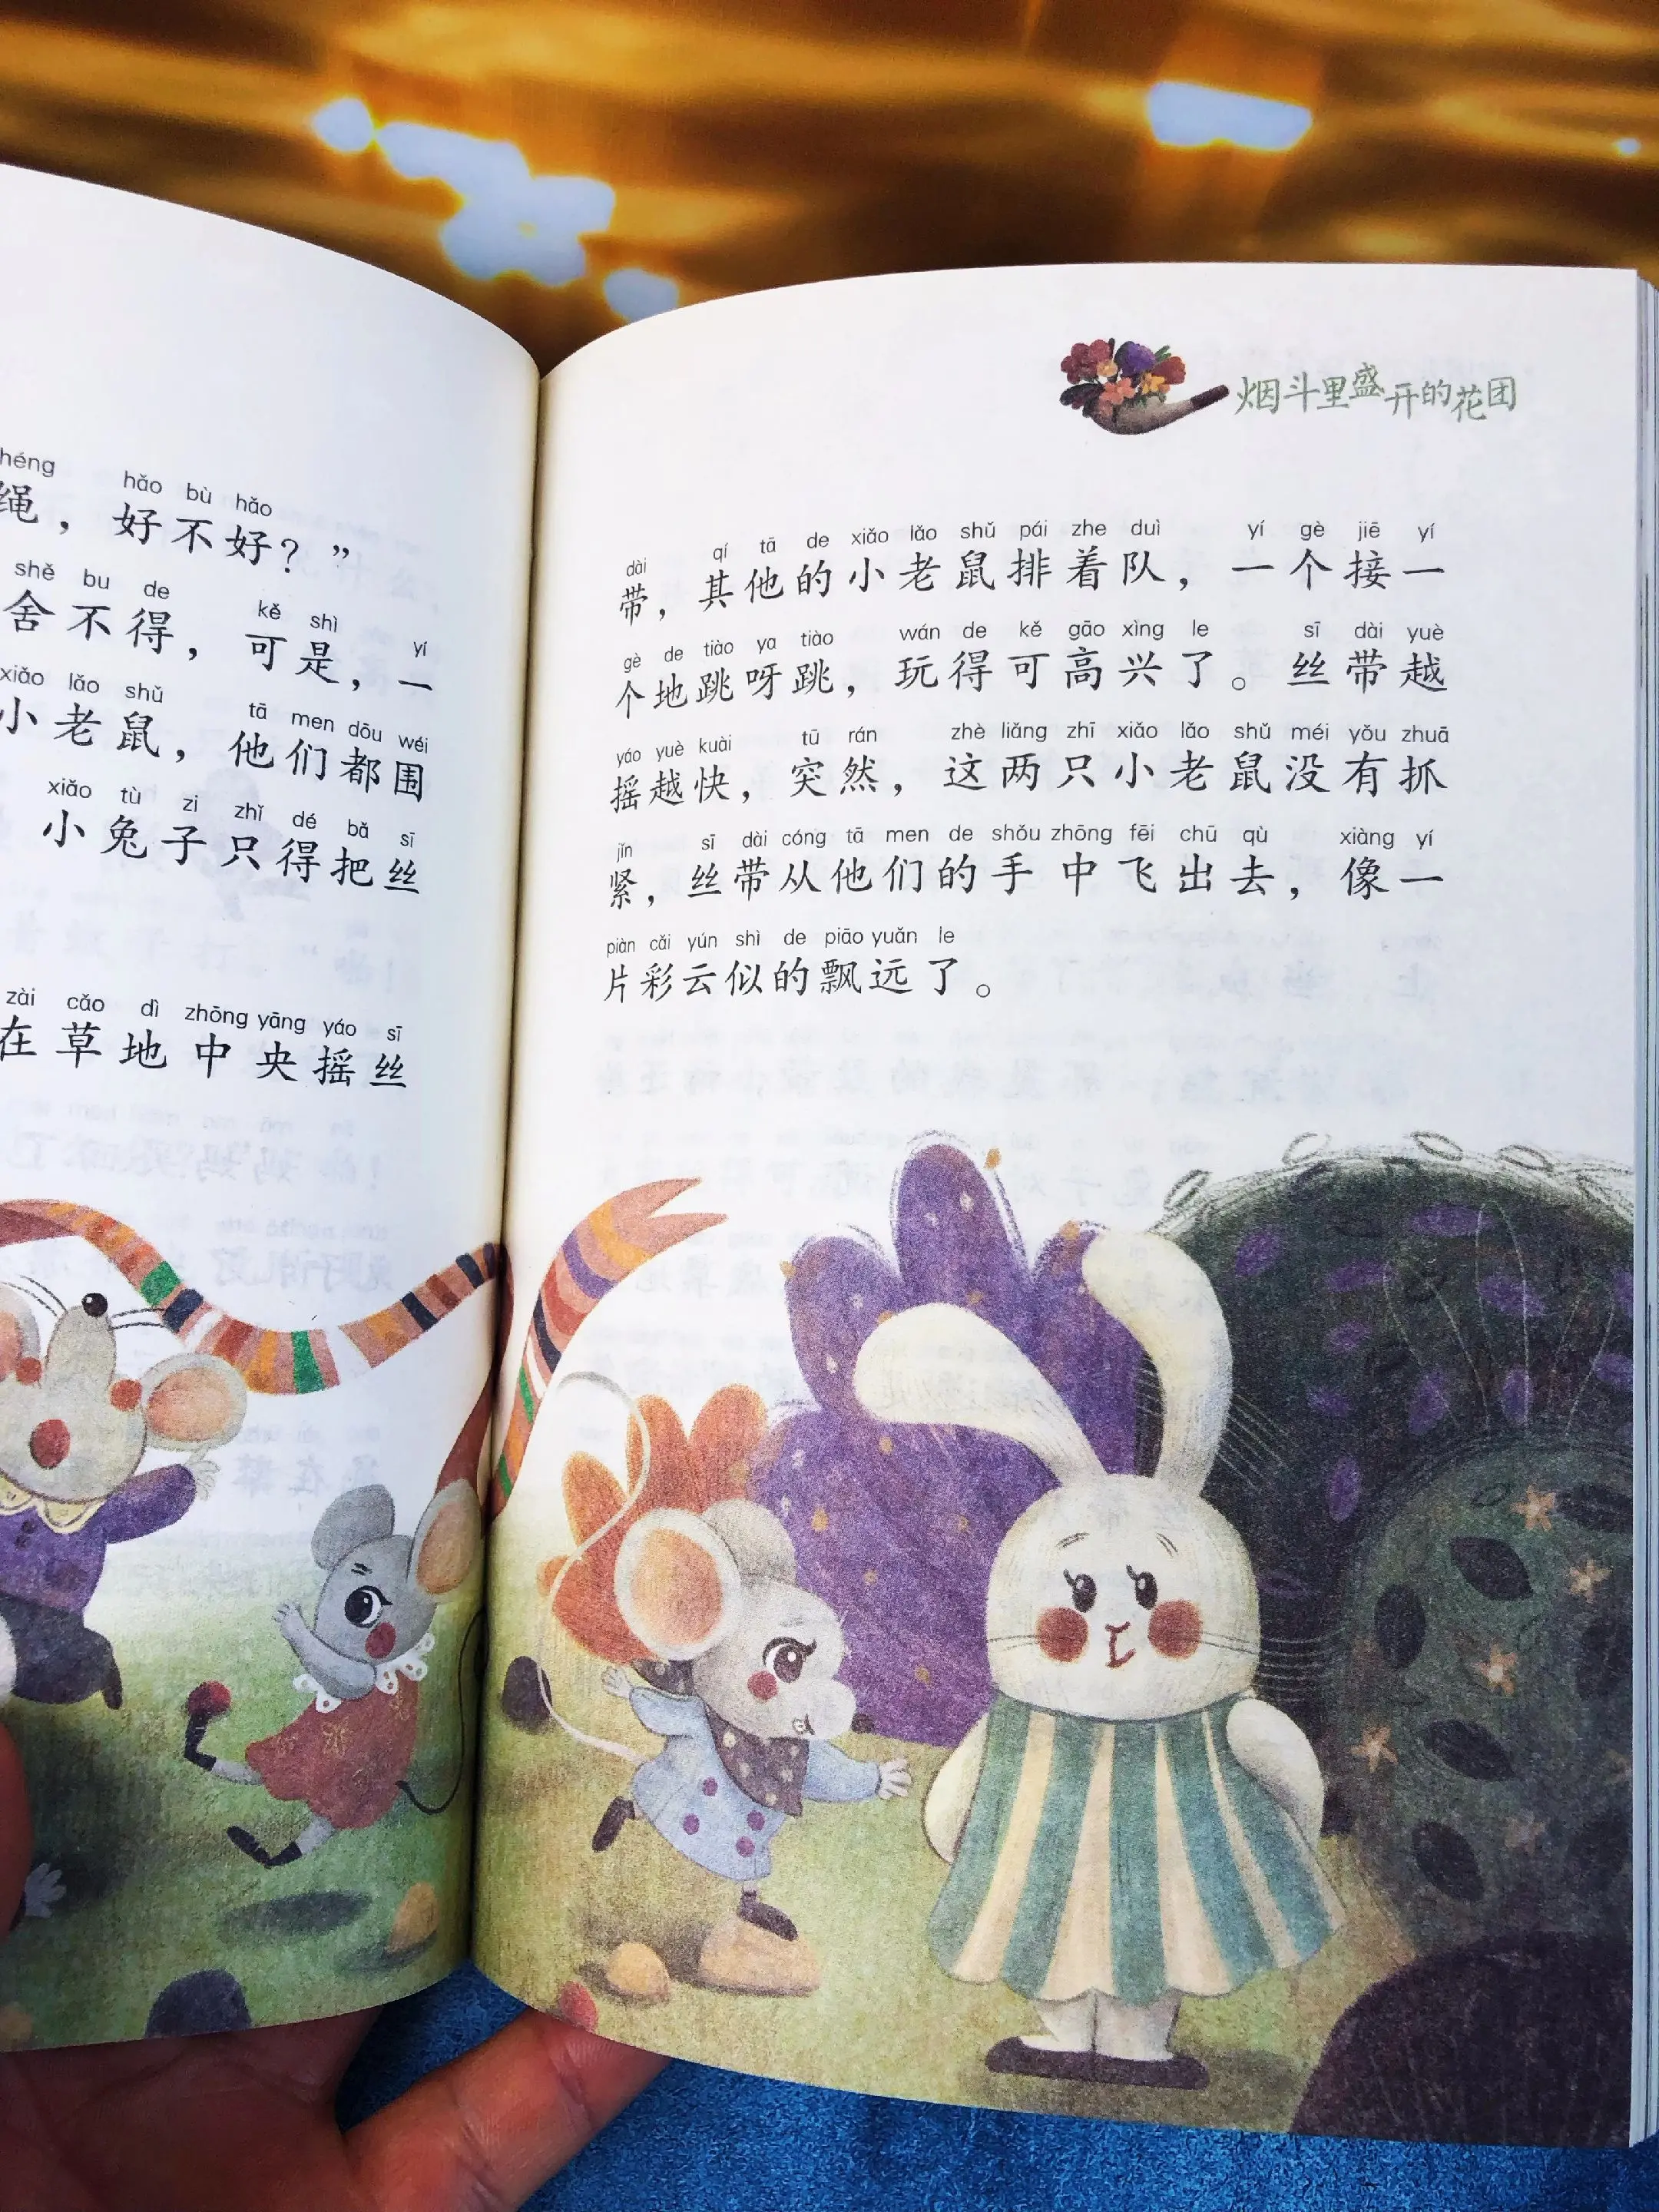 héng hǎo bù hǎo
绳，好不好？”
shě bu de kě shì yí
舍不得，可是，一
xiǎo lǎo shǔ tā men dōu wéi
小老鼠，他们都围
xiǎo tù zi zhǐ dé bǎ sī
小兔子只得把丝
zài cǎo dì zhōng yāng yáo sī
在草地中央摇丝
烟斗里盛开的花团
dài qí tā de xiǎo lǎo shǔ pái zhe duì yí gè jiē yí
带，其他的小老鼠排着队，一个接一
gè de tiào ya tiào wán de kě gāo xìng le sī dài yuè
个地跳呀跳，玩得可高兴了。丝带越
yáo yuè kuài tū rán zhè liǎng zhī xiǎo lǎo shǔ méi yǒu zhuā
摇越快，突然，这两只小老鼠没有抓
jǐn sī dài cóng tā men de shǒu zhōng fēi chū qù xiàng yí
紧，丝带从他们的手中飞出去，像一
piàn cǎi yún shì de piāo yuǎn le
片彩云似的飘远了。